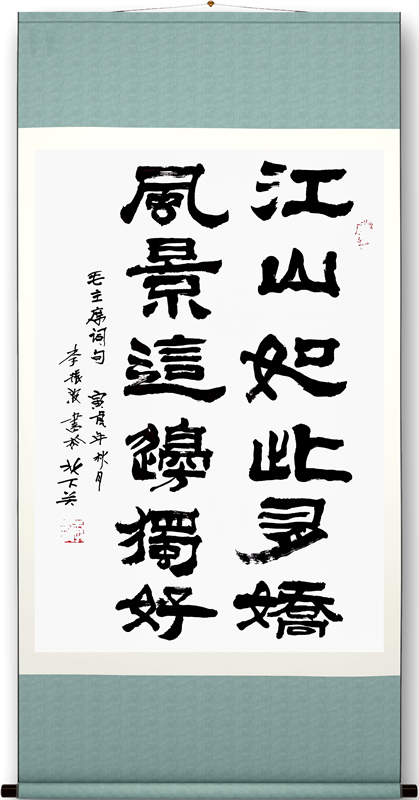 江山如此多嬌
風景這邊獨好
毛主席词句 寅虎年秋月
李振波書於北下关